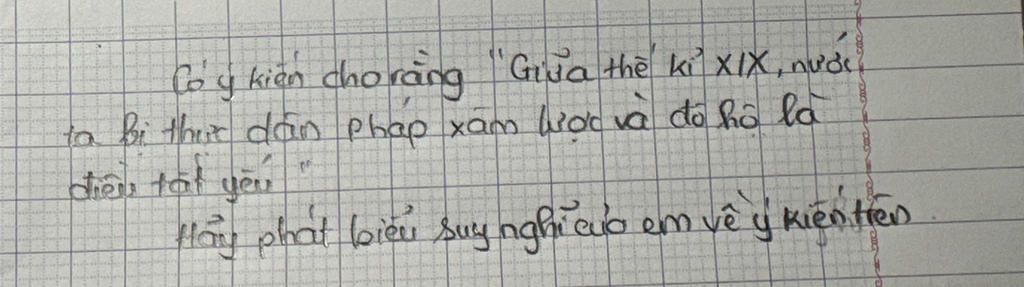 Có ý kiến cho rằng "Giữa thế kỉ XIX, nước
ta bị thực dân Pháp xâm lược và đô hộ là
điều tất yếu"
Hãy phát biểu suy nghĩ của em về ý kiến trên.